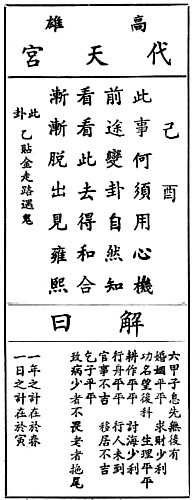 高雄
代天宮
己酉
此事何須用心機
前途變卦自然知
看看此去得和合
漸漸脫出見雍熙
此卦 乙貼金走路遇鬼
解曰
六甲子息先無後有
婚姻平平 求財少利
功名望後科 生理平平
耕作平平 討海少利
行舟平平 行人未到
官事不吉 移居不吉
乞子平平
致病少者不畏老者拖尾
一年之計在於春
一日之計在於寅